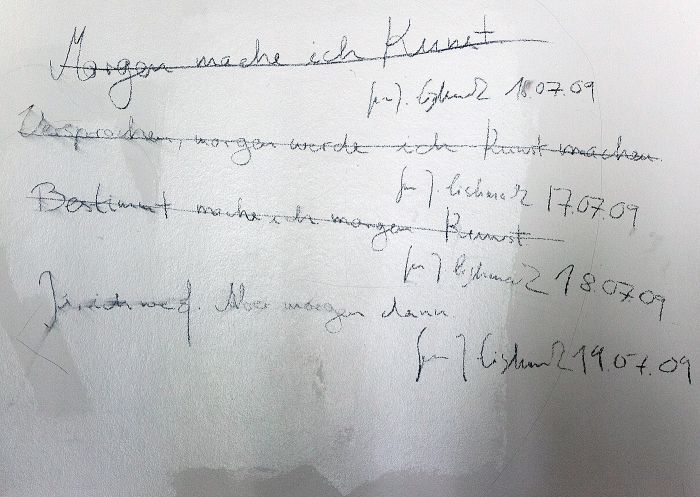 Morgen mache ich Kunst
J.
Versprochen, morgen werde ich Kunst machen
J. 17.07.09
Bestimmt mache ich morgen Kunst
J. 18.07.09
Ja, ich weiß. Aber morgen dann.
J. 19.07.09